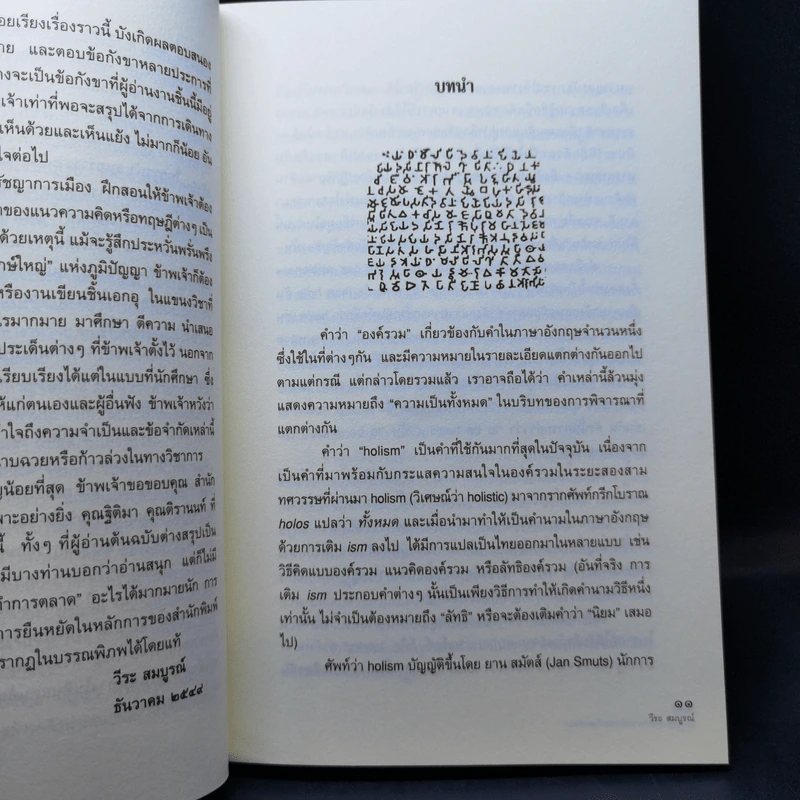 อยเรียงเรื่องราวนี้ บังเกิดผลตอบสนอง
และตอบข้อกังขาหลายประการที่
างจะเป็นข้อกังขาที่ผู้อ่านงานชิ้นนี้มีอยู่
เจ้าเท่าที่พอจะสรุปได้จากการเดินทาง
เห็นด้วยและเห็นแย้ง ไม่มากก็น้อย อัน
ใจต่อไป
รัชญาการเมือง ฝึกสอนให้ข้าพเจ้าต้อง
าของแนวความคิดหรือทฤษฎีต่างๆ เป็น
ด้วยเหตุนี้ แม้จะรู้สึกประหวั่นพรั่นพรึง
กษ์ใหญ่” แห่งภูมิปัญญา ข้าพเจ้าก็ต้อง
หรืองานเขียนชิ้นเอกอุ ในแขนงวิชาที่
รมากมาย มาศึกษา ตีความ นำเสนอ
ประเด็นต่างๆ ที่ข้าพเจ้าตั้งไว้ นอกจาก
เรียบเรียงได้แต่ในแบบที่นักศึกษา ซึ่ง
ให้แก่ตนเองและผู้อื่นฟัง ข้าพเจ้าหวังว่า
าใจถึงความจำเป็นและข้อจำกัดเหล่านี้
าบฉวยหรือก้าวล่วงในทางวิชาการ
ญน้อยที่สุด ข้าพเจ้าขอขอบคุณ สำนัก
พาะอย่างยิ่ง คุณฐิติมา คุณติรานนท์ ที่
นี้ ทั้งๆ ที่ผู้อ่านต้นฉบับต่างสรุปเป็น
มีบางท่านบอกว่าอ่านสนุก แต่ก็ไม่มี
ทำการตลาด” อะไรได้มากมายนัก การ
การยืนหยัดในหลักการของสำนักพิมพ์
รากฏในบรรณพิภพได้โดยแท้
วีระ สมบูรณ์
ธันวาคม ๒๕๔๙
บทนำ
คำว่า “องค์รวม” เกี่ยวข้องกับคำในภาษาอังกฤษจำนวนหนึ่ง
ซึ่งใช้ในที่ต่างๆกัน และมีความหมายในรายละเอียดแตกต่างกันออกไป
ตามแต่กรณี แต่กล่าวโดยรวมแล้ว เราอาจถือได้ว่า คำเหล่านี้ล้วนมุ่ง
แสดงความหมายถึง “ความเป็นทั้งหมด” ในบริบทของการพิจารณาที่
แตกต่างกัน
คำว่า “holism” เป็นคำที่ใช้กันมากที่สุดในปัจจุบัน เนื่องจาก
เป็นคำที่มาพร้อมกับกระแสความสนใจในองค์รวมในระยะสองสาม
ทศวรรษที่ผ่านมา holism (วิเศษณ์ว่า holistic) มาจากรากศัพท์กรีกโบราณ
holos แปลว่า ทั้งหมด และเมื่อนำมาทำให้เป็นคำนามในภาษาอังกฤษ
ด้วยการเติม ism ลงไป ได้มีการแปลเป็นไทยออกมาในหลายแบบ เช่น
วิธีคิดแบบองค์รวม แนวคิดองค์รวม หรือลัทธิองค์รวม (อันที่จริง การ
เติม ism ประกอบคำต่างๆ นั้นเป็นเพียงวิธีการทำให้เกิดคำนามวิธีหนึ่ง
เท่านั้น ไม่จำเป็นต้องหมายถึง “ลัทธิ” หรือจะต้องเติมคำว่า “นิยม” เสมอ
ไป)
ศัพท์ว่า holism บัญญัติขึ้นโดย ยาน สมัตส์ (Jan Smuts) นักการ
๑๑
วีระ สมบูรณ์